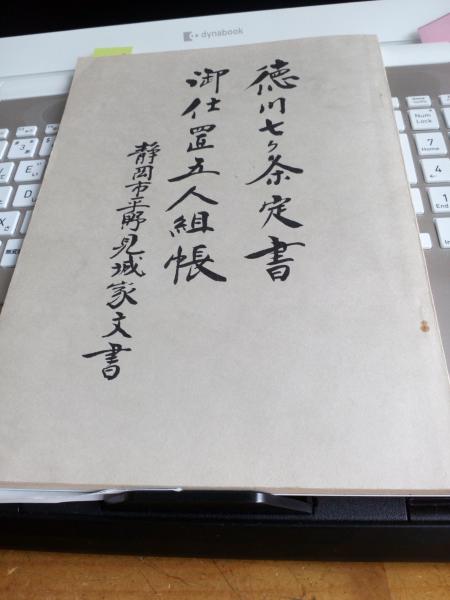 dynabook
徳川七ケ条定書
御仕置五人組帳
静岡市平野見城家文書
Num
Lock
7
Home
4
1
End